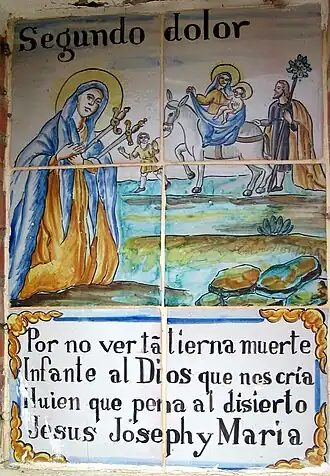 Segundo dolor
Por no ver tā tierna muerte
Infante al Dios que nos cría
Huien que pena al disierto
Jesus Joseph y Maria